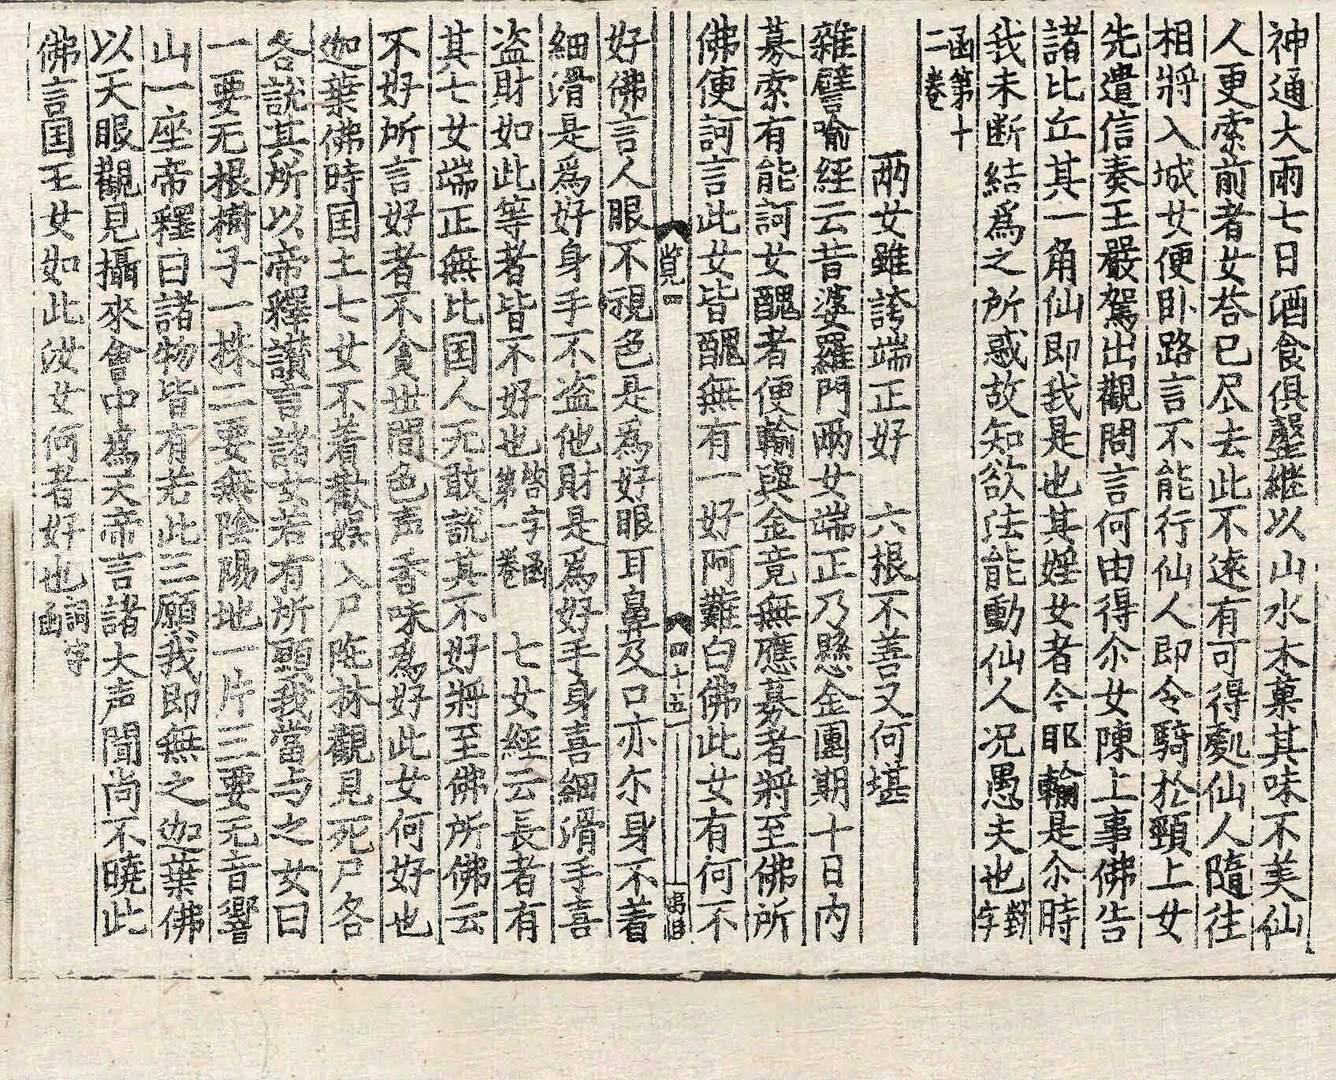 神通大雨七日酒食俱罄継以山水木菓其味不美仙
人更索前者女荅已尽去此不逺有可得處仙人隨往
相將入城女便卧路言不能行仙人即令騎於頸上女
先遣信奏王嚴駕出觀問言何由得尒女陳上事佛告
諸比丘其一角仙即我是也其婬女者今耶輸是尒時
我未断結爲之所惑故知欲法能動仙人况愚夫也對字
函第十二卷
兩女雖誇端正好 六根不善又何堪
雜譬喻經云昔婆羅門兩女端正乃懸金圍期十日內
募索有能訶女醜者便輸與金竟無應募者將至佛所
佛便訶言此女皆醜無有一好阿難白佛此女有何不
覧一
四十五
好佛言人眼不視色是爲好眼耳鼻及口亦尒身不着
細滑是爲好身手不盗他財是爲好手身喜細滑手喜
盗財如此等者皆不好也啓字函第一卷 七女經云長者有
其七女端正無比国人无敢說其不好將至佛所佛云
不好所言好者不貪世間色声香味爲好此女何好也
迦葉佛時国王七女不着歡娯入尸陁林觀見死尸各
各說其所以帝釋讃言諸女若有所願我當与之女曰
一要无根樹子一株二要無陰陽地一片三要无音響
山一座帝釋曰諸物皆有若此三願我即無之迦葉佛
以天眼觀見攝來會中爲天帝言諸大声聞尚不曉此
佛言国王女如此汝女何者好也詞字函